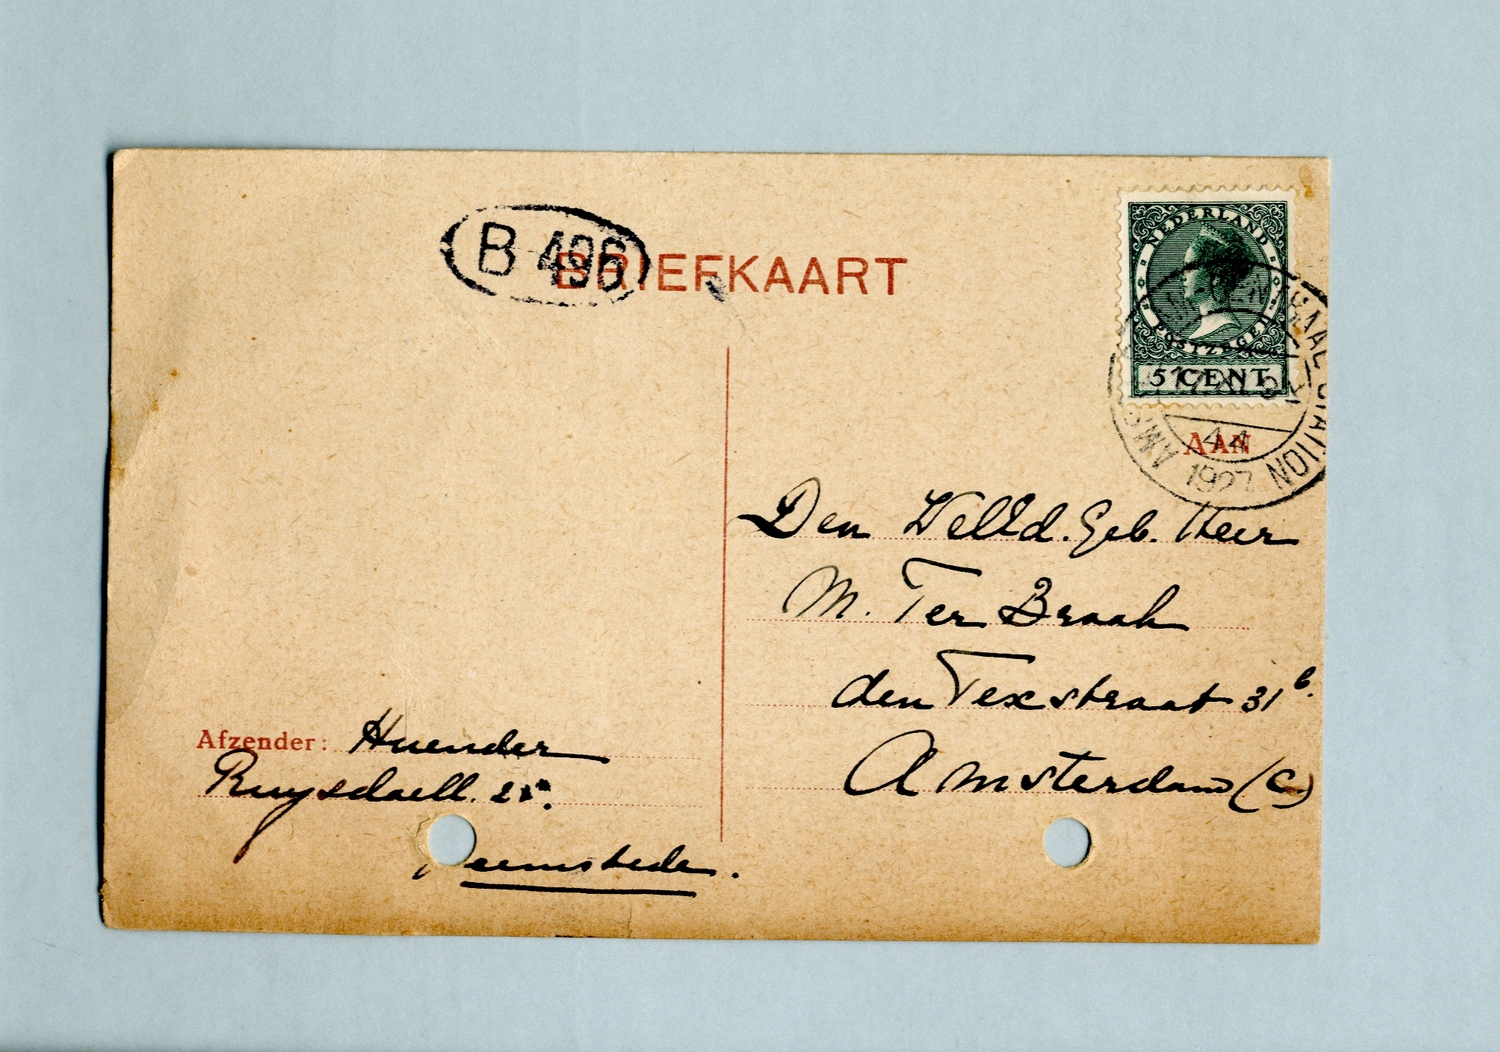 B 496
BRIEFKAART
NEDERLAND
POSTZEGEL
5 CENT
CENTRAAL STATION
1927
AMS
AAN
Den WelEd. Geb. Heer
M. Ter Braak
den Texstraat 31 b.
Amsterdam (C)
Afzender: Huender
Ruysdaell.
eemstede.